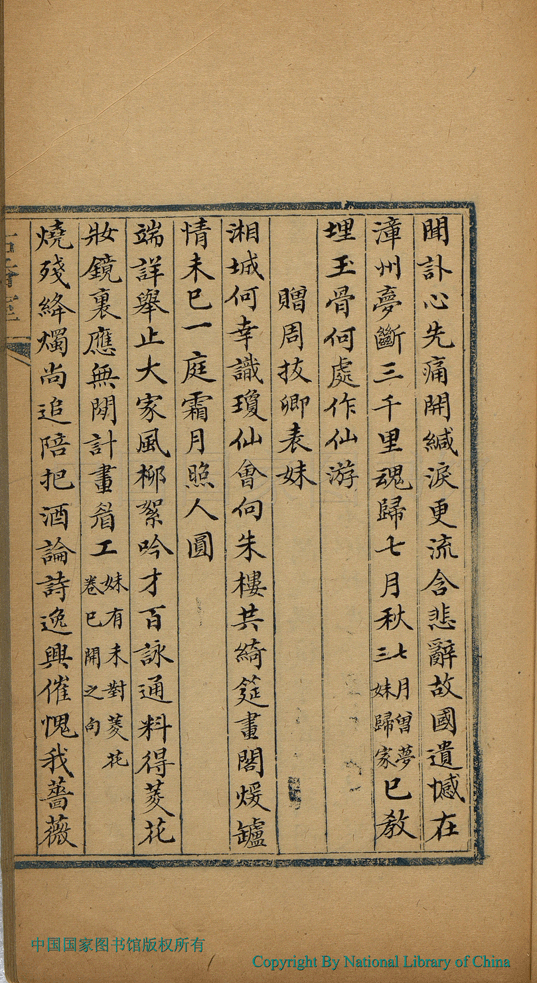 聞訃心先痛開緘淚更流含悲辭故國遺憾在
漳州夢斷三千里魂歸七月秋七月曾夢三妹歸家已教
埋玉骨何處作仙游
贈周拔卿表妹
湘城何幸識瓊仙會向朱樓共綺筵畫閣煖罏
情未已一庭霜月照人圓
端詳舉止大家風柳絮吟才百詠通料得菱花
妝鏡裏應無閒計畫眉工妹有未對菱花卷已開之句
燒殘絳燭尚追陪把酒論詩逸興催愧我薔薇
中国国家图书馆版权所有
Copyright By National Library of China